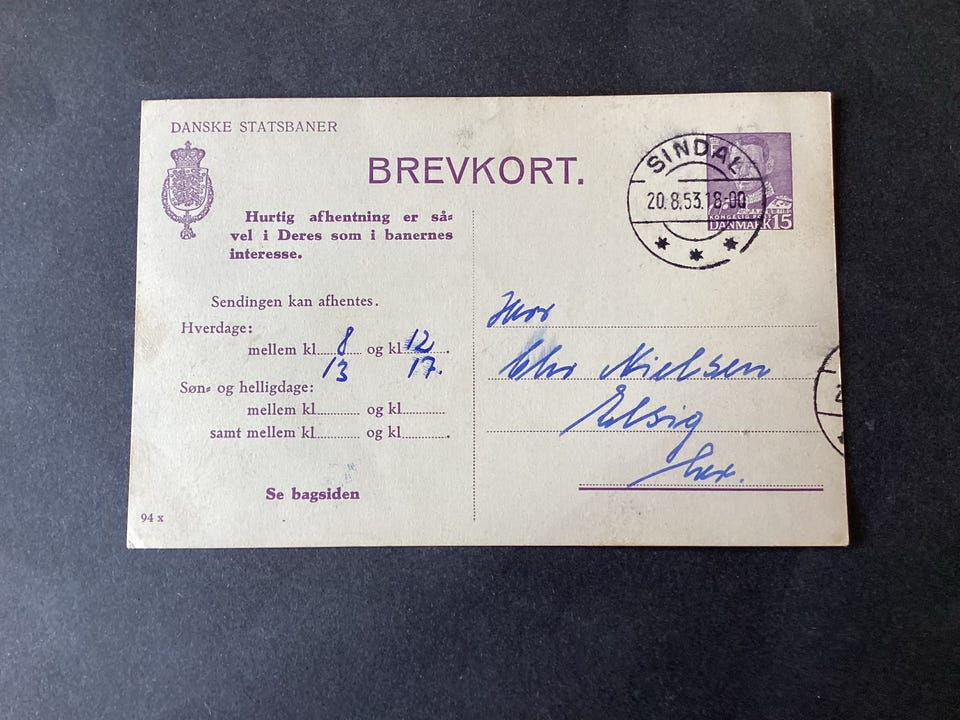 DANSKE STATSBANER
BREVKORT.
Hurtig afhentning er så=
vel i Deres som i banernes
interesse.
Sendingen kan afhentes.
Hverdage:
mellem kl. 8 og kl. 12.
13 17.
Søn= og helligdage:
mellem kl. og kl.
samt mellem kl. og kl. .
Se bagsiden
94 x
SINDAL
20.8.53.18-00
DANMARK 15
Herr
Chr Nielsen
Elsig
her.